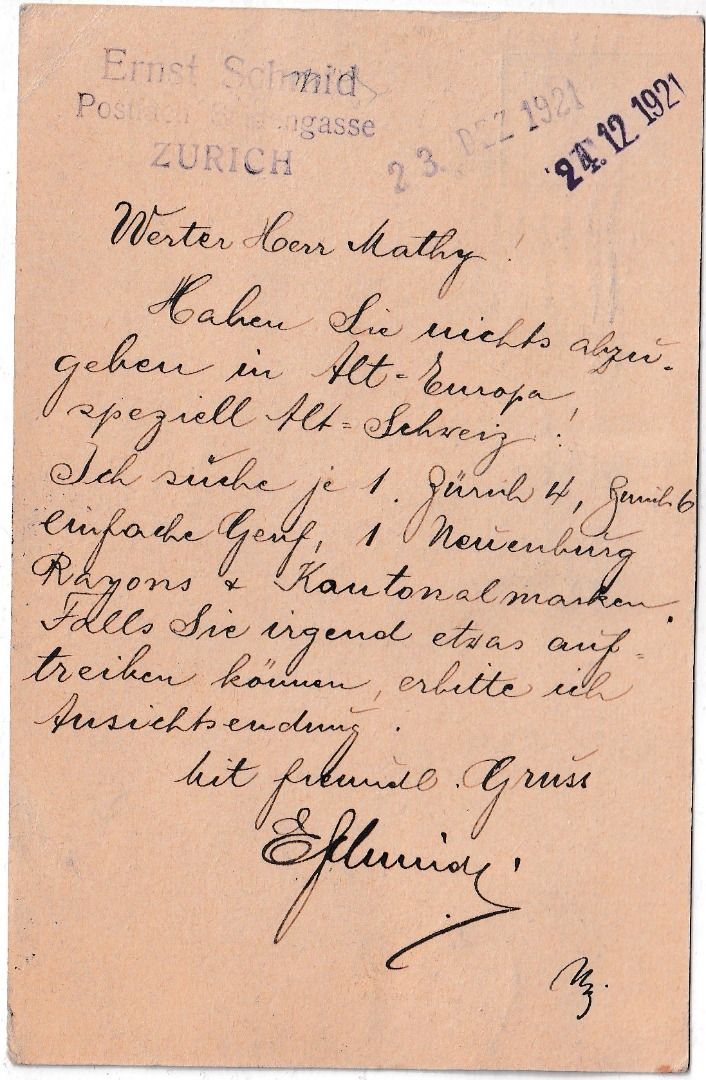 Ernst Schmid
Postfach
ZURICH
23. DEZ 1921
24.12.1921
Werter Herr Mathy!
Haben Sie nichts abzu-
geben in Alt-Europa,
speziell Alt-Schweiz?
Ich suche je 1. Zürich 4, Zürich 6
einfache Genf, 1 Neuenburg
Rayons & Kantonalmarken.
Falls Sie irgend etwas auf-
treiben können, erbitte ich
Ansichtsendung.
Mit freundl. Gruss
ESchmid